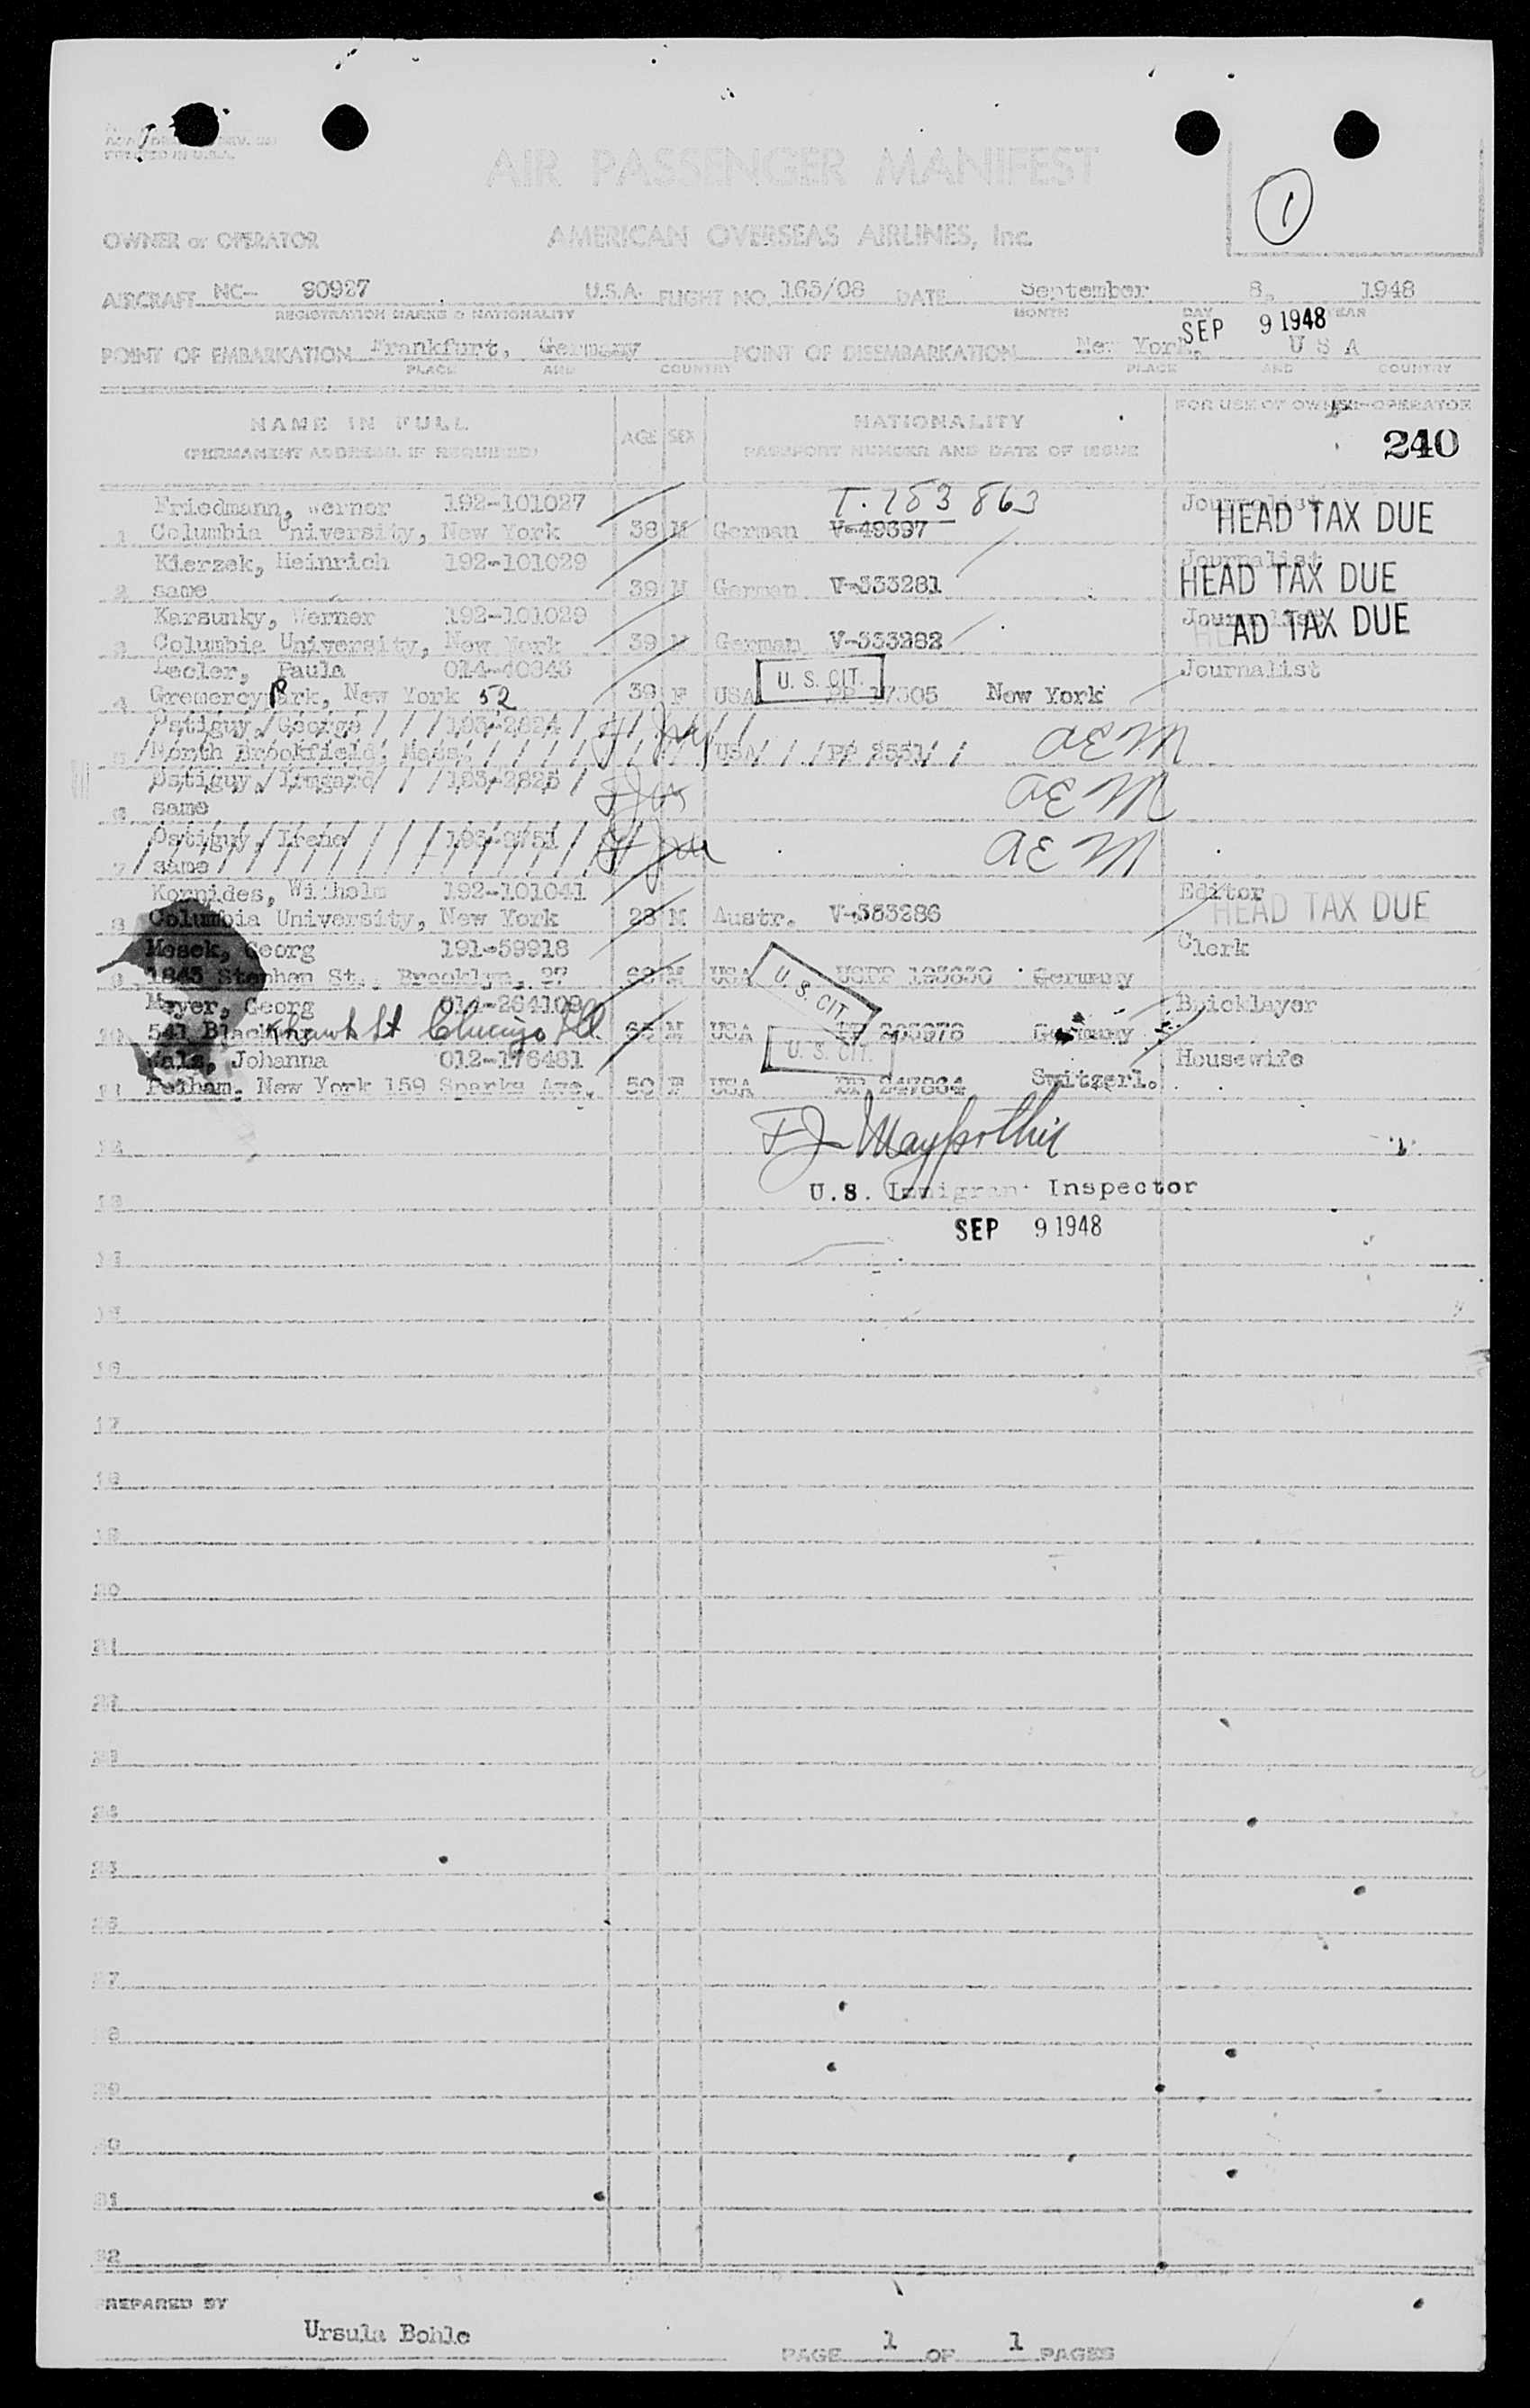 PRINTED IN U.S.A.
AIR PASSENGER MANIFEST
1
OWNER or OPERATOR AMERICAN OVERSEAS AIRLINES, Inc.
AIRCRAFT NC- 90927 U.S.A. FLIGHT NO. 165/08 DATE September 8, 1948
REGISTRATION MARKS & NATIONALITY MONTH DAY YEAR
SEP 9 1948
POINT OF EMBARKATION Frankfurt, Germany POINT OF DISEMBARKATION New York, U S A
PLACE AND COUNTRY PLACE AND COUNTRY
NAME IN FULL AGE SEX NATIONALITY FOR USE OF OWNER-OPERATOR
(PERMANENT ADDRESS, IF REQUIRED) PASSPORT NUMBER AND DATE OF ISSUE 240
Friedmann, Werner 192-101027 T. 153 863 Journalist
1 Columbia University, New York 38 M German V-49397 HEAD TAX DUE
Kierzek, Heinrich 192-101029 Journalist
2 same 39 M German V-333281 HEAD TAX DUE
Karsunky, Werner 192-101029 Journalist
3 Columbia University, New York 39 M German V-333282 HEAD TAX DUE
Paula Journalist
4 Gremercypark, New York 52 39 F USA U. S. CIT. New York
Ostiguy, George
5 North Brookfield, Mass. USA PP 2551 AEM
Ostiguy, Irmgard 193-2825
6 same AEM
Ostiguy, Irene
7 same AEM
Kornides, Wilhelm 192-101041 Editor
8 Columbia University, New York 28 M Austr. V-383286 HEAD TAX DUE
Mosek, Georg 191-59918 Clerk
9 1843 Stephen St., Brooklyn, 27 M USA U. S. CIT. USPP Germany
Meyer, Georg 014-264109 Bricklayer
10 541 Blackhawk St Chicago Ill 65 M USA Germany
Johanna 012-176481 U. S. CIT. Housewife
11 Pelham, New York 159 Sparks Ave. 50 F USA Switzerl.
12
13 U.S. Immigrant Inspector
SEP 9 1948
14
15
16
17
18
19
20
21
22
23
24
25
26
27
28
29
30
31
32
PREPARED BY
Ursula Bohle
PAGE 1 OF 1 PAGES